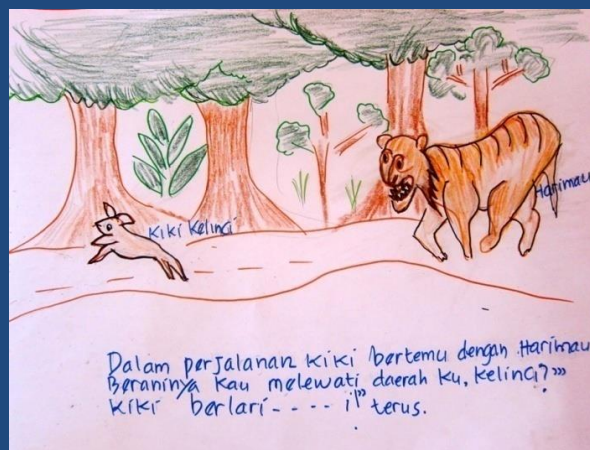 Kiki Kelinci
Harimau
Dalam perjalanan Kiki bertemu dengan Harimau
Beraninya Kau melewati daerah ku, Kelinci?"
Kiki berlari - - - - i" terus.